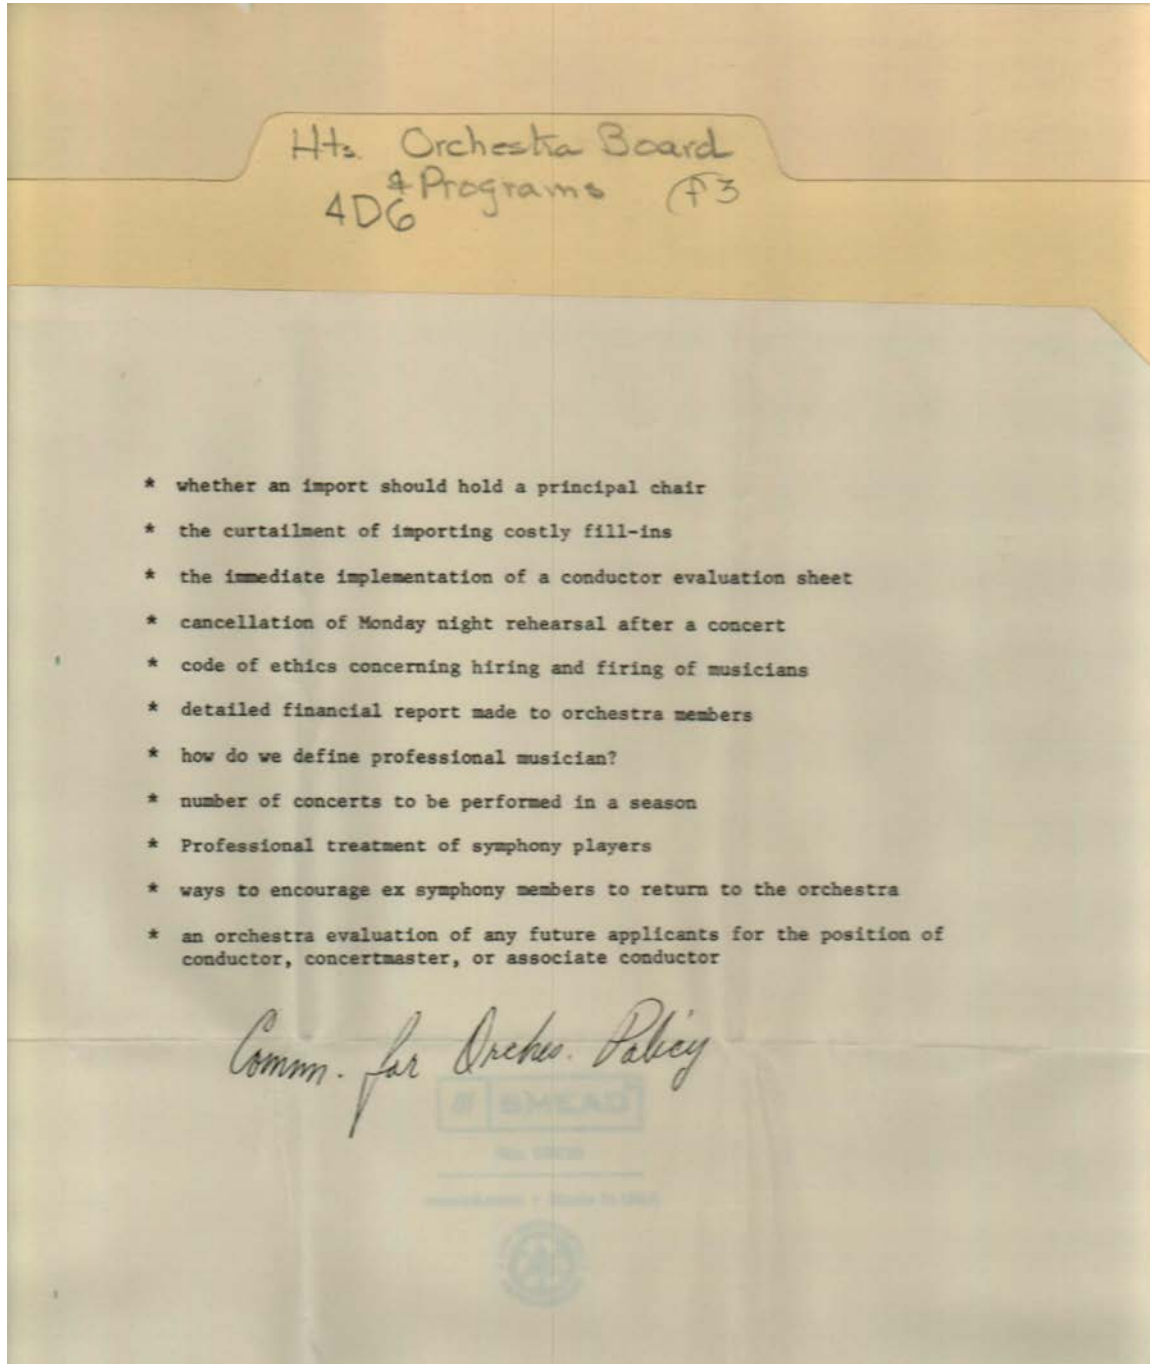 Hts. Orchestra Board
& Programs
4D6
* whether an import should hold a principal chair
* the curtailment of importing costly fill-ins
* the immediate implementation of a conductor evaluation sheet
* cancellation of Monday night rehearsal after a concert
* code of ethics concerning hiring and firing of musicians
* detailed financial report made to orchestra members
* how do we define professional musician?
* number of concerts to be performed in a season
* Professional treatment of symphony players
* ways to encourage ex symphony members to return to the orchestra
* an orchestra evaluation of any future applicants for the position of
conductor, concertmaster, or associate conductor
Comm. for Orches. Policy
SMEAD